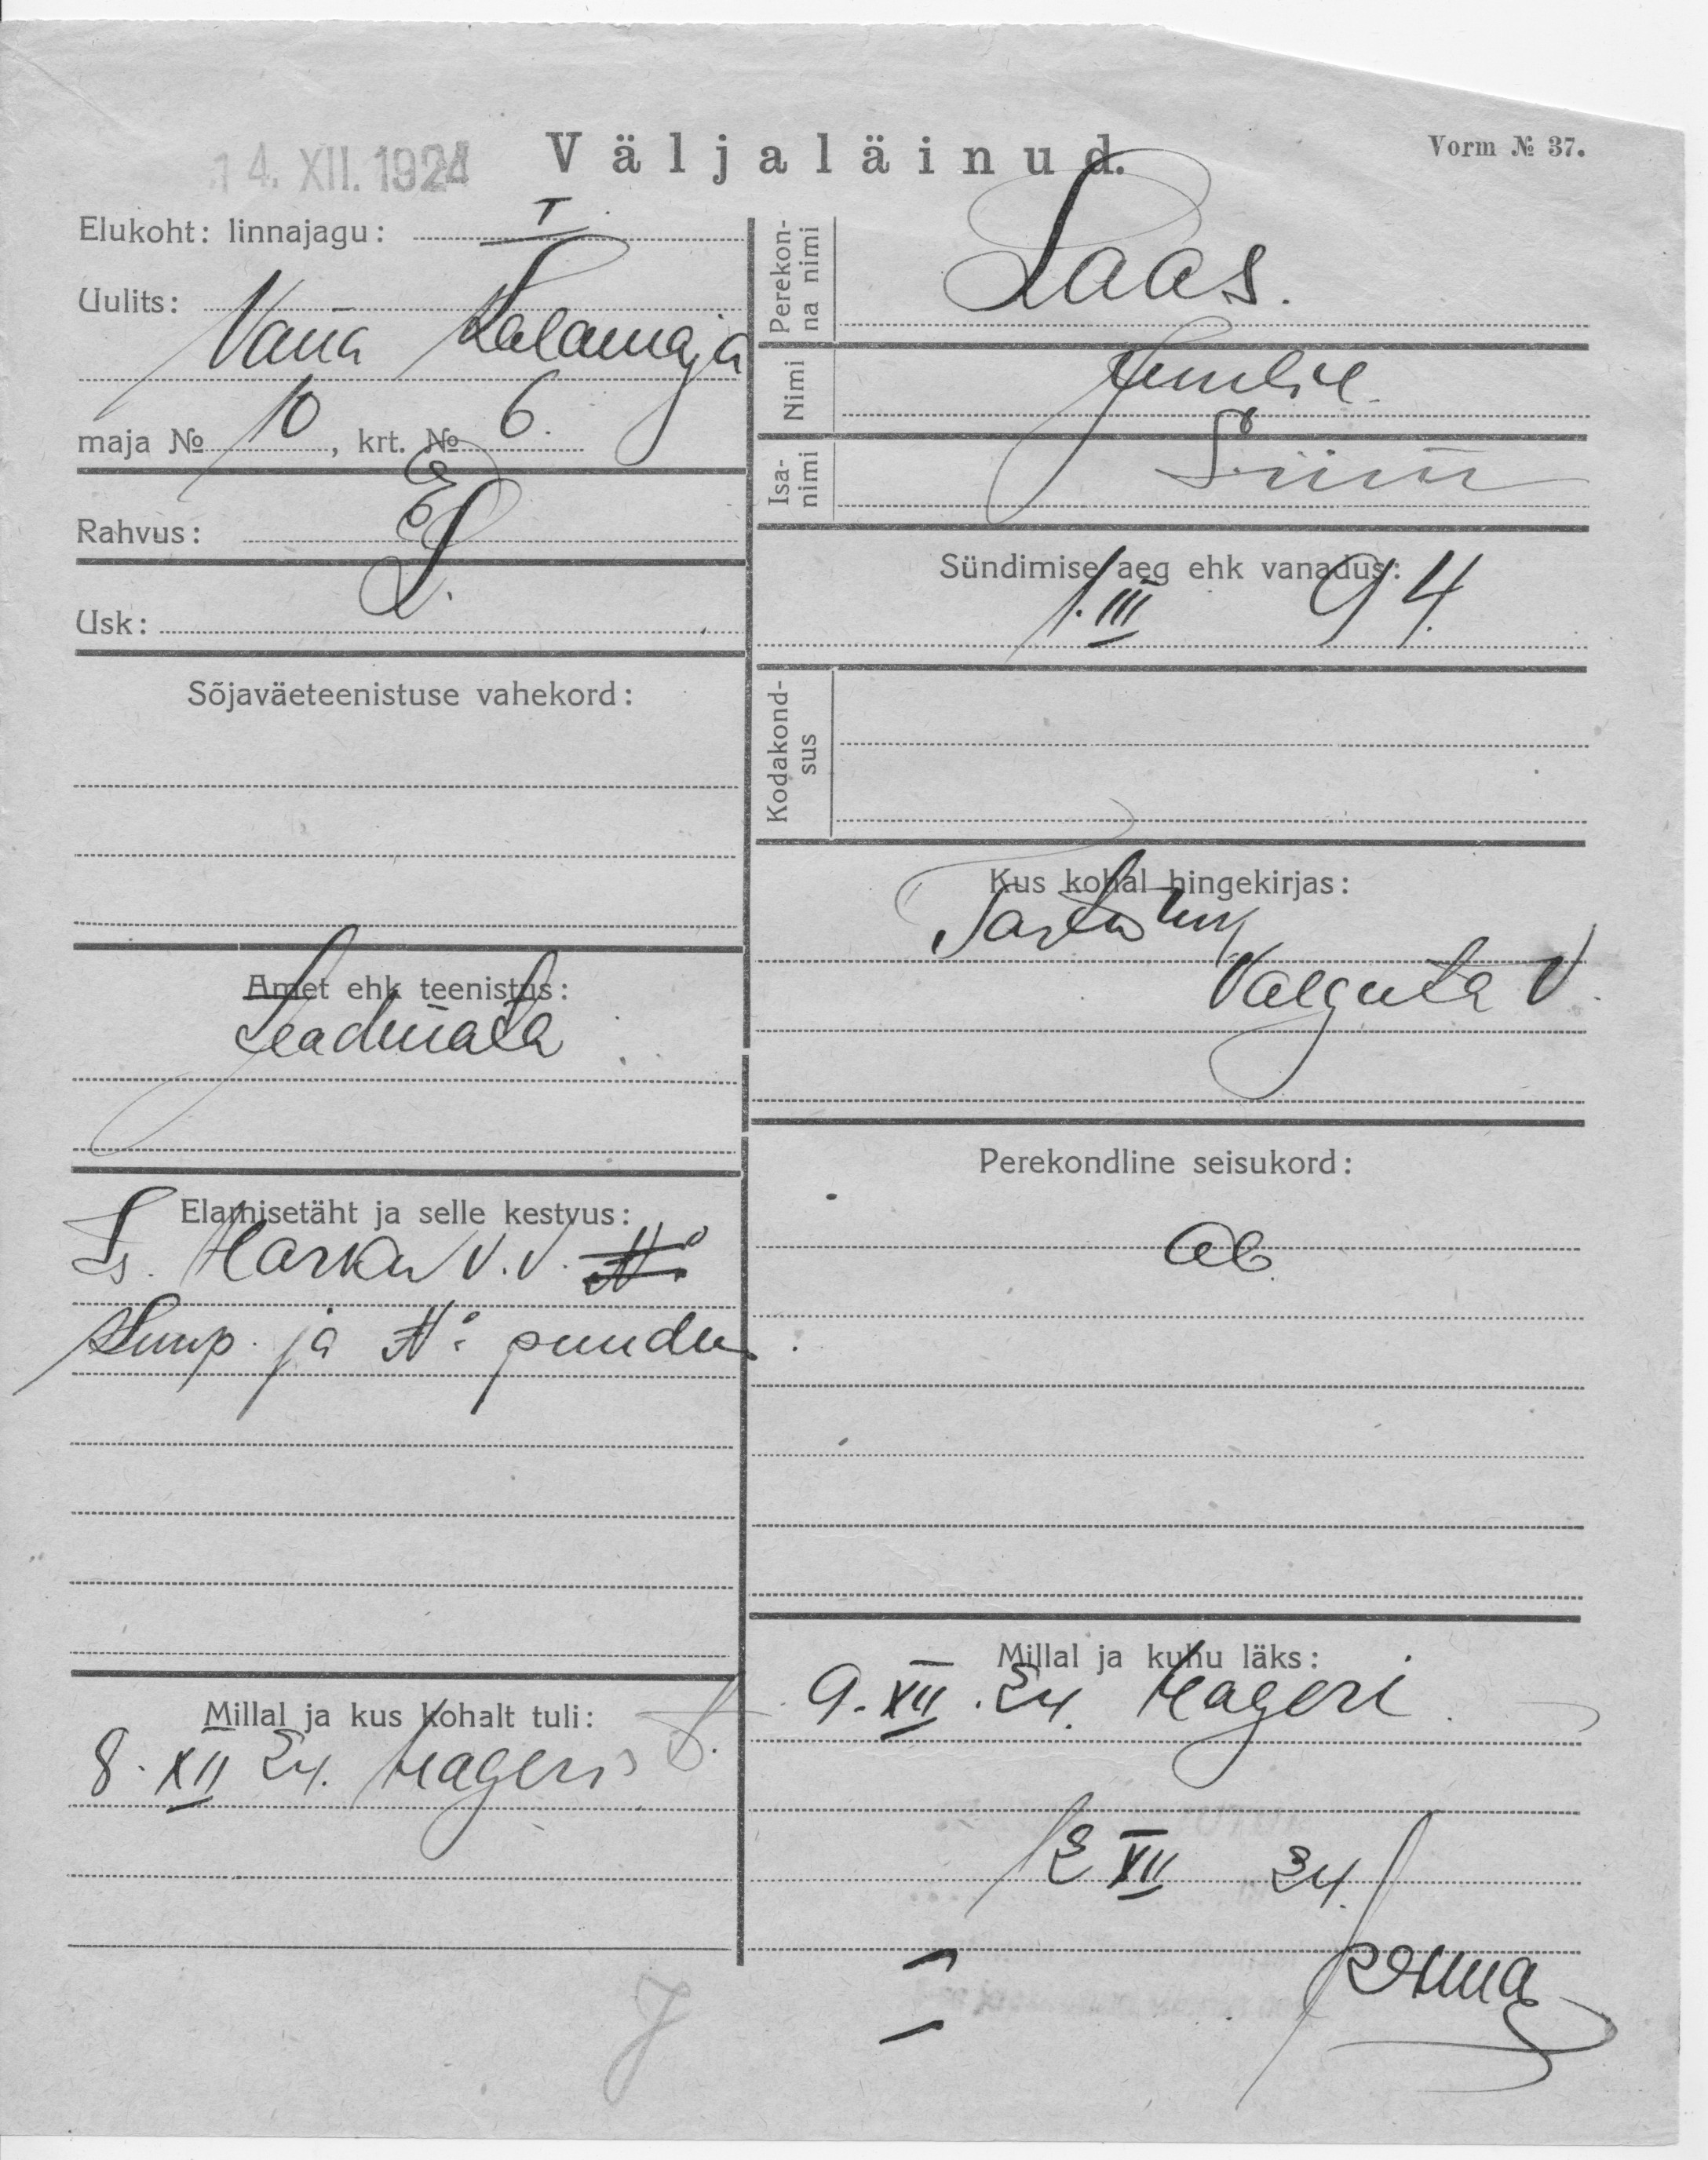 14. XII. 1924
Väljaläinud.
Vorm № 37.
Elukoht: linnajagu: I
Uulits: Vana Kalamaja
maja № 10, krt. № 6.
Rahvus: E
Usk: L.
Sõjaväeteenistuse vahekord:
Amet ehk teenistus:
Seadmata
Elamisetäht ja selle kestvus:
Is. Harku V. V. №
Kuup. ja №. puudu.
Millal ja kus kohalt tuli:
8. XII 24. Hageris
Perekonna nimi
Laas.
Nimi
Isanimi
Siim
Sündimise aeg ehk vanadus:
1. III 94.
Kodakondsus
Kus kohal hingekirjas:
Tartu
Valguta V.
Perekondline seisukord:
ab.
Millal ja kuhu läks:
9. XII. 24. Hageri.
12 XII 24.